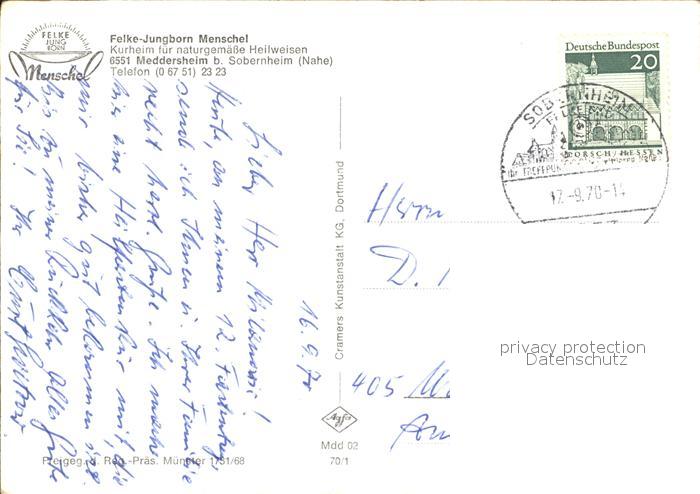 FELKE
JUNG
BORN
Menschel
Felke-Jungborn Menschel
Kurheim für naturgemäße Heilweisen
6551 Meddersheim b. Sobernheim (Nahe)
Telefon (0 67 51) 23 23
Deutsche Bundespost
20
LORSCH/HESSEN
SOBERNHEIM
17.-9.70-14
16.9.70
Lieber Herr
Heute, an meinem 12. Fastentag,
sende ich Ihnen u. Ihrer Familie
recht herzl. Grüße. Ich mache
hier eine Heilfastenkur mit, die
mir bisher gut bekommen ist.
Bis zu meiner Rückkehr alles Gute
für Sie! Ihr
Cramers Kunstanstalt KG, Dortmund
Herrn
D.
405
Agfa
Mdd 02
70/1
Freigeg. d. Reg.-Präs. Münster 1751/68
privacy protection
Datenschutz